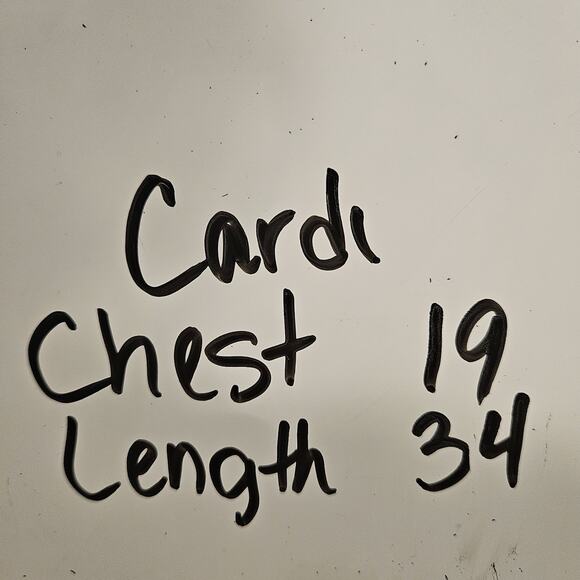 Cardi
Chest 19
Length 34